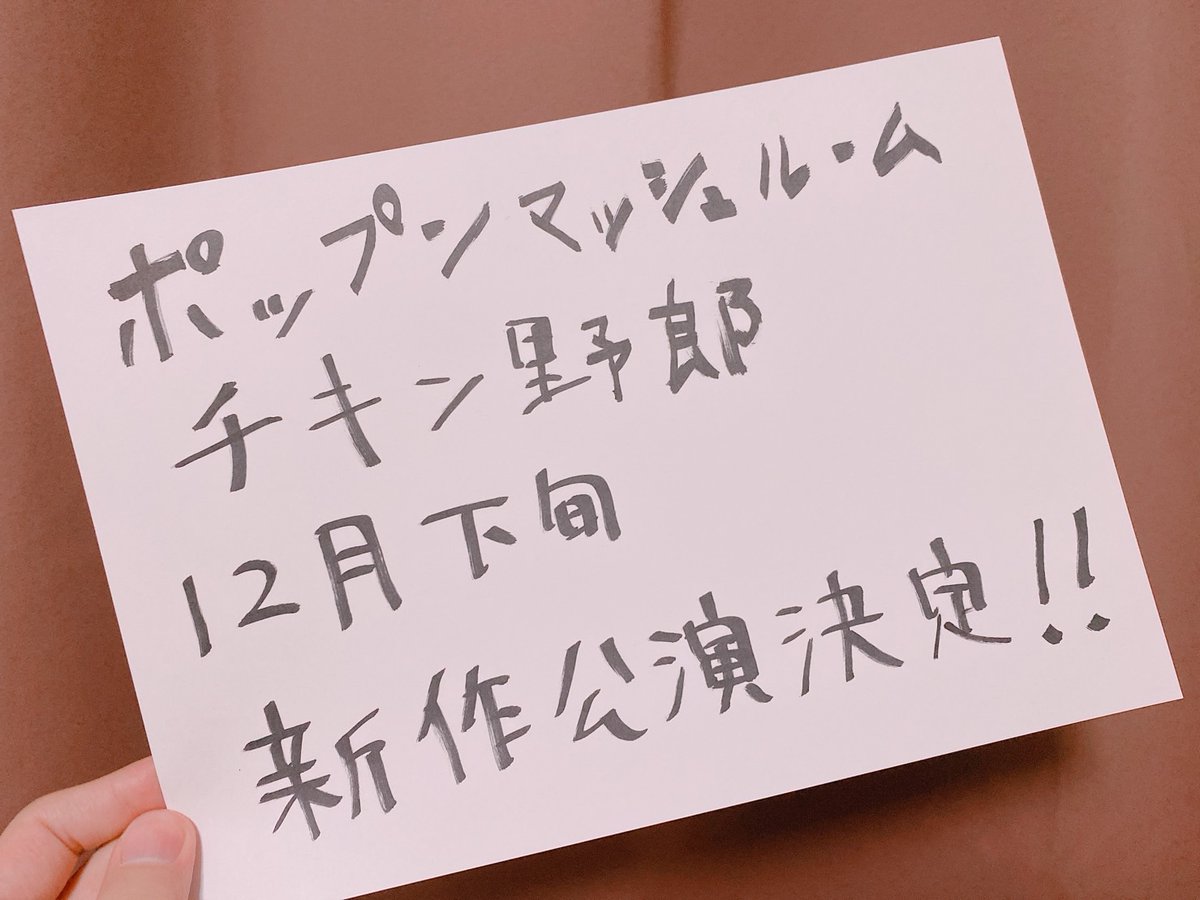 ポップンマッシュルーム
チキン野郎
12月下旬
新作公演決定!!